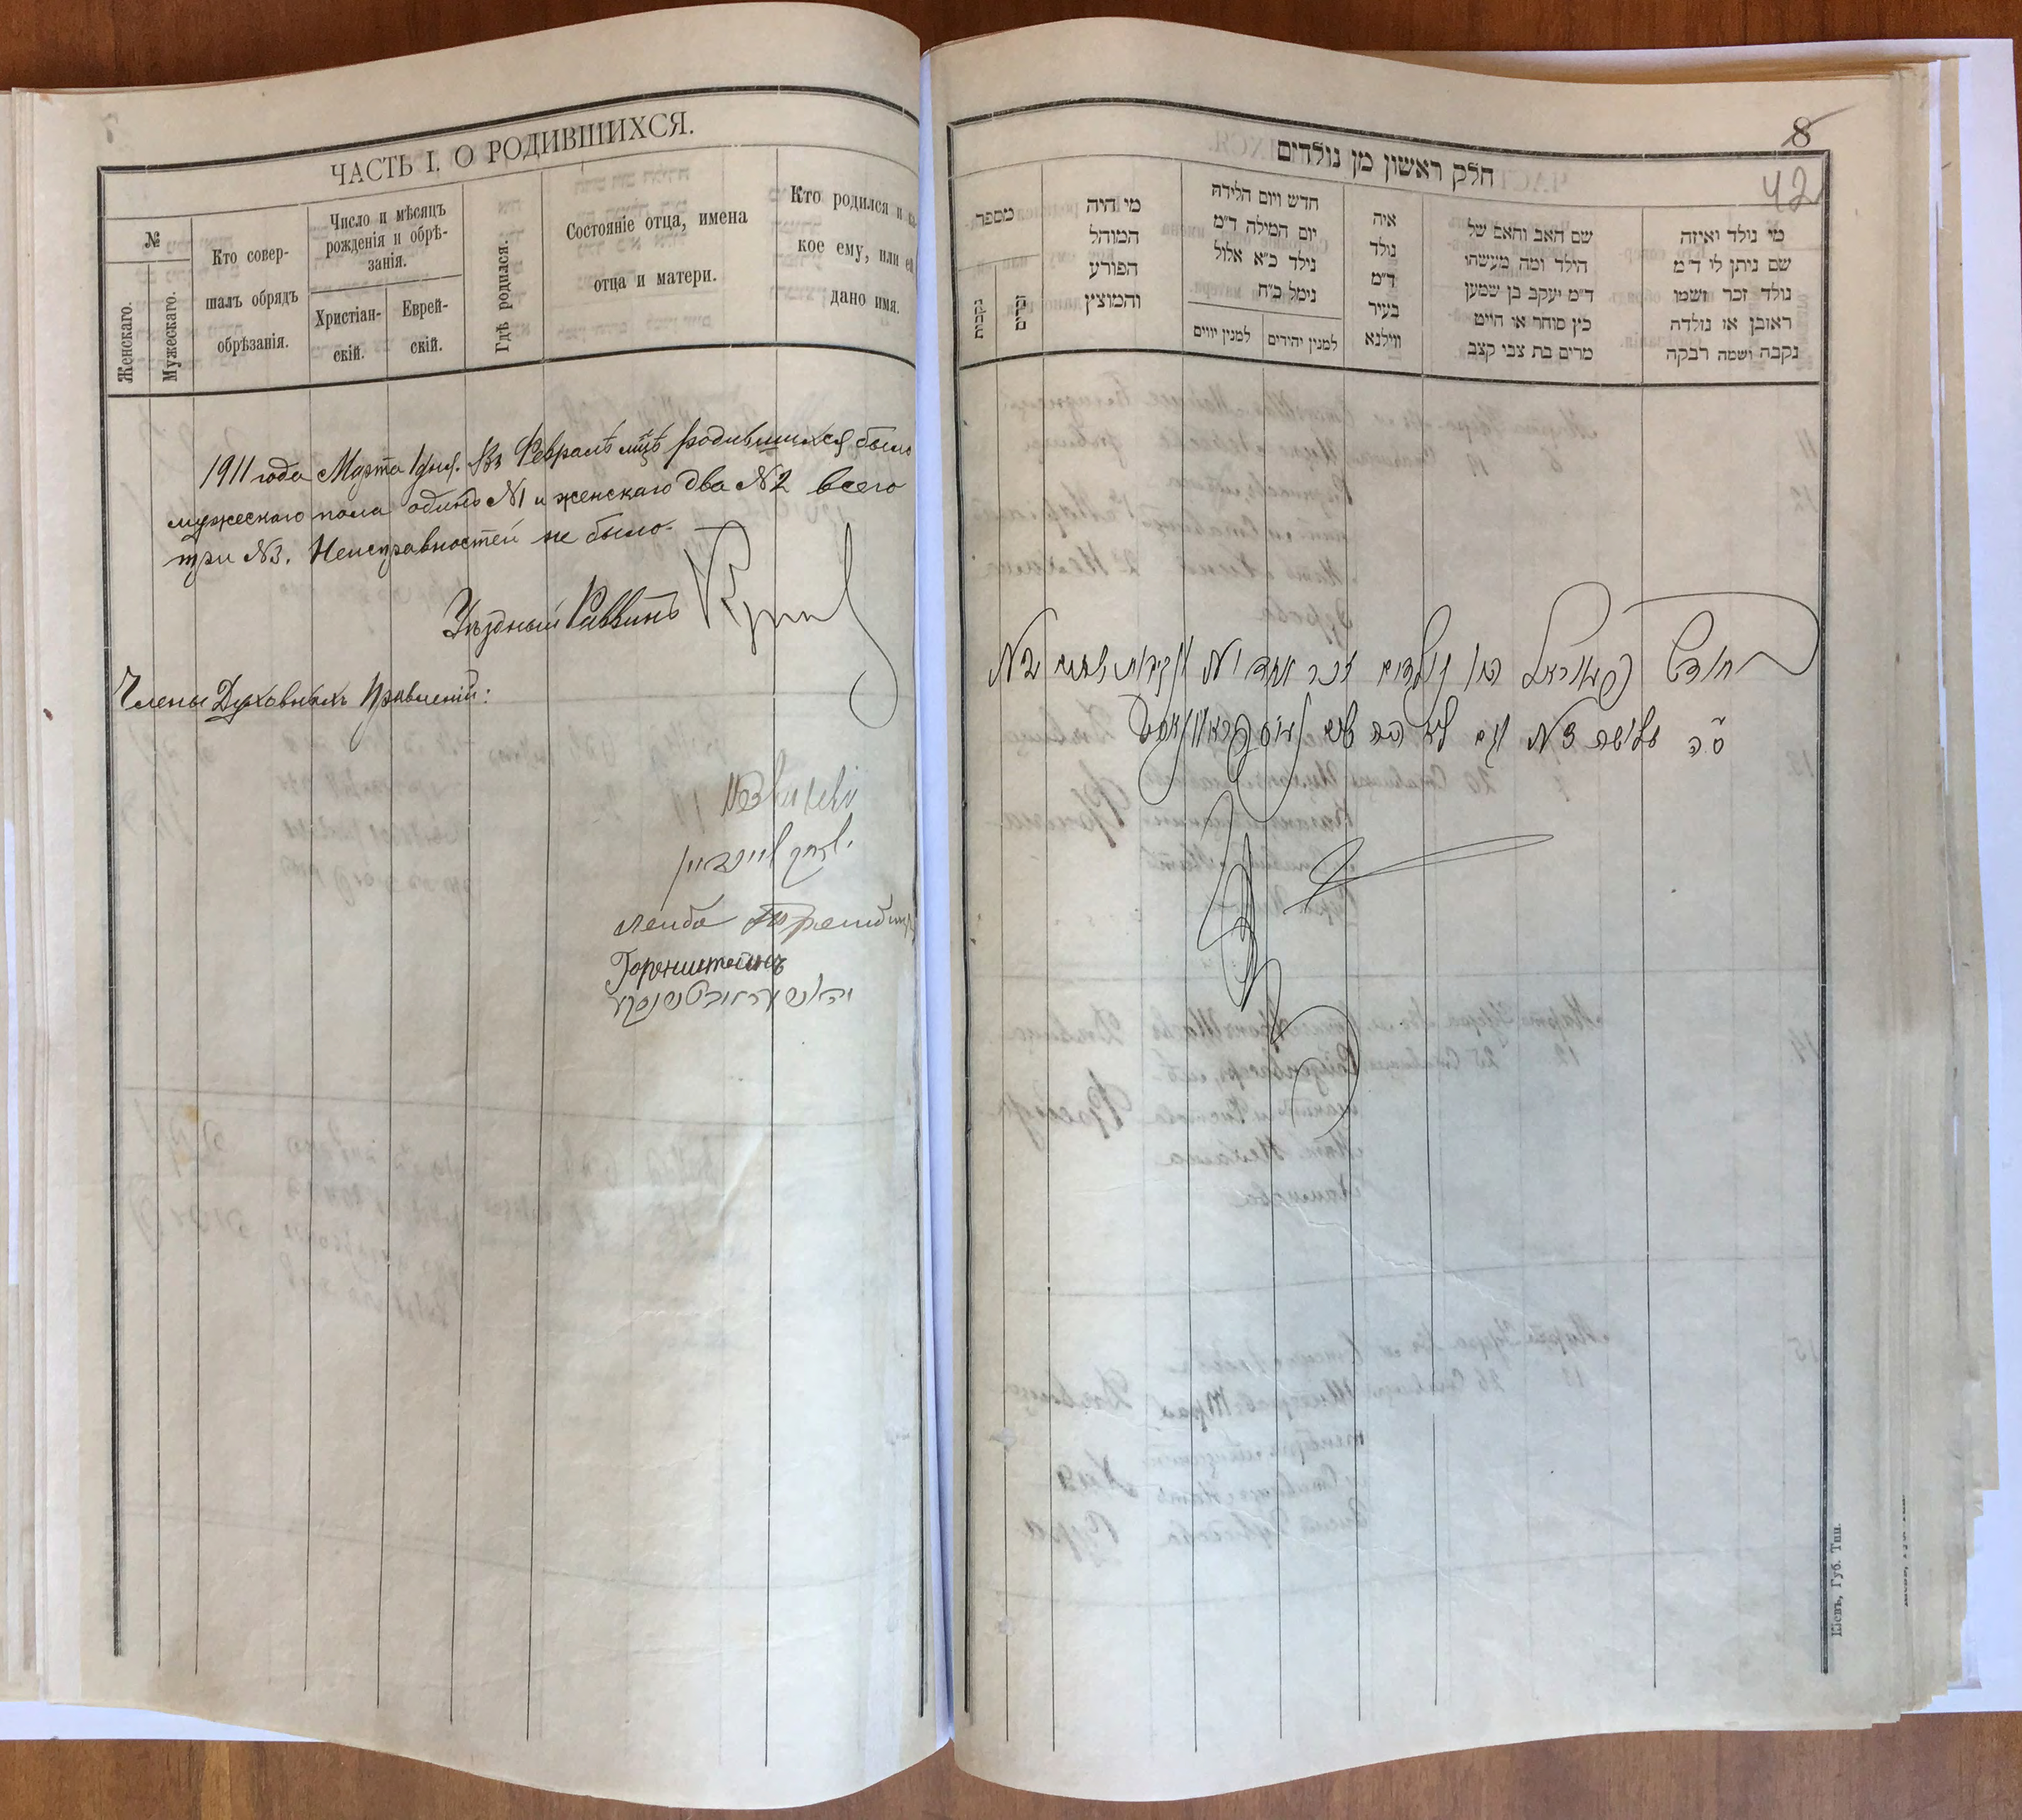 ЧАСТЬ I. О РОДИВШИХСЯ.
№
Женскаго.
Мужескаго.
Кто совер-
шалъ обрядъ
обрѣзанія.
Число и мѣсяцъ
рожденія и обрѣ-
занія.
Христіан-
скій.
Еврей-
скій.
Гдѣ родился.
Состояніе отца, имена
отца и матери.
Кто родился и
кое ему, или
дано имя.
1911 года Марта 1 дня. Въ Февралѣ мцѣ родившихся было
мужескаго пола одинъ №1 и женскаго два №2 всего
три №3. Неисправностей не было.
Уѣздный Раввинъ
Члены Духовныхъ Правленій:
Лейба
Горенштейнъ
8
42
חלק ראשון מן נולדים
מספר
נקבות
זכרים
מי היה
המוהל
הפורע
והמוצץ
חדש ויום הלידה
יום המילה ד״מ
נולד כ״א אלול
נימל כ״ח
למנין יווים
למנין יהודים
איה
נולד
ד״מ
בעיר
ווילנא
שם האב והאם של
הילד ומה מעשהו
ד״מ יעקב בן שמען
כץ סוחר או חייט
מרים בת צבי קצב
מי נולד ואיזה
שם ניתן לו ד״מ
נולד זכר ושמו
ראובן או נולדה
נקבה ושמה רבקה
חודש פעווראל היו נולדים זכר אחד №1 ונקיבות שתים №2
ס״ה שלושה №3 וגם לא היה שום
Кіевъ, Губ. Тип.